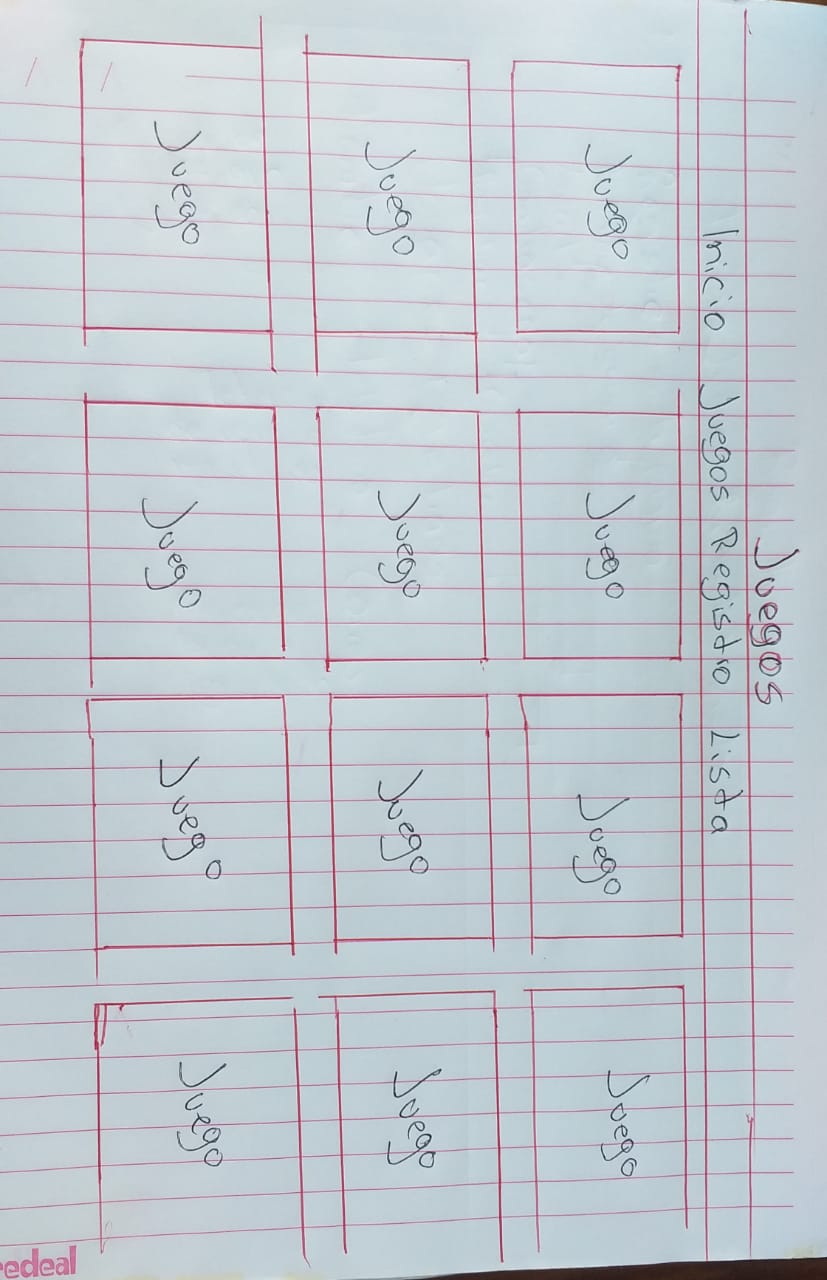 Juegos
Inicio Juegos Registro Lista
Juego Juego Juego Juego
Juego Juego Juego Juego
Juego Juego Juego Juego